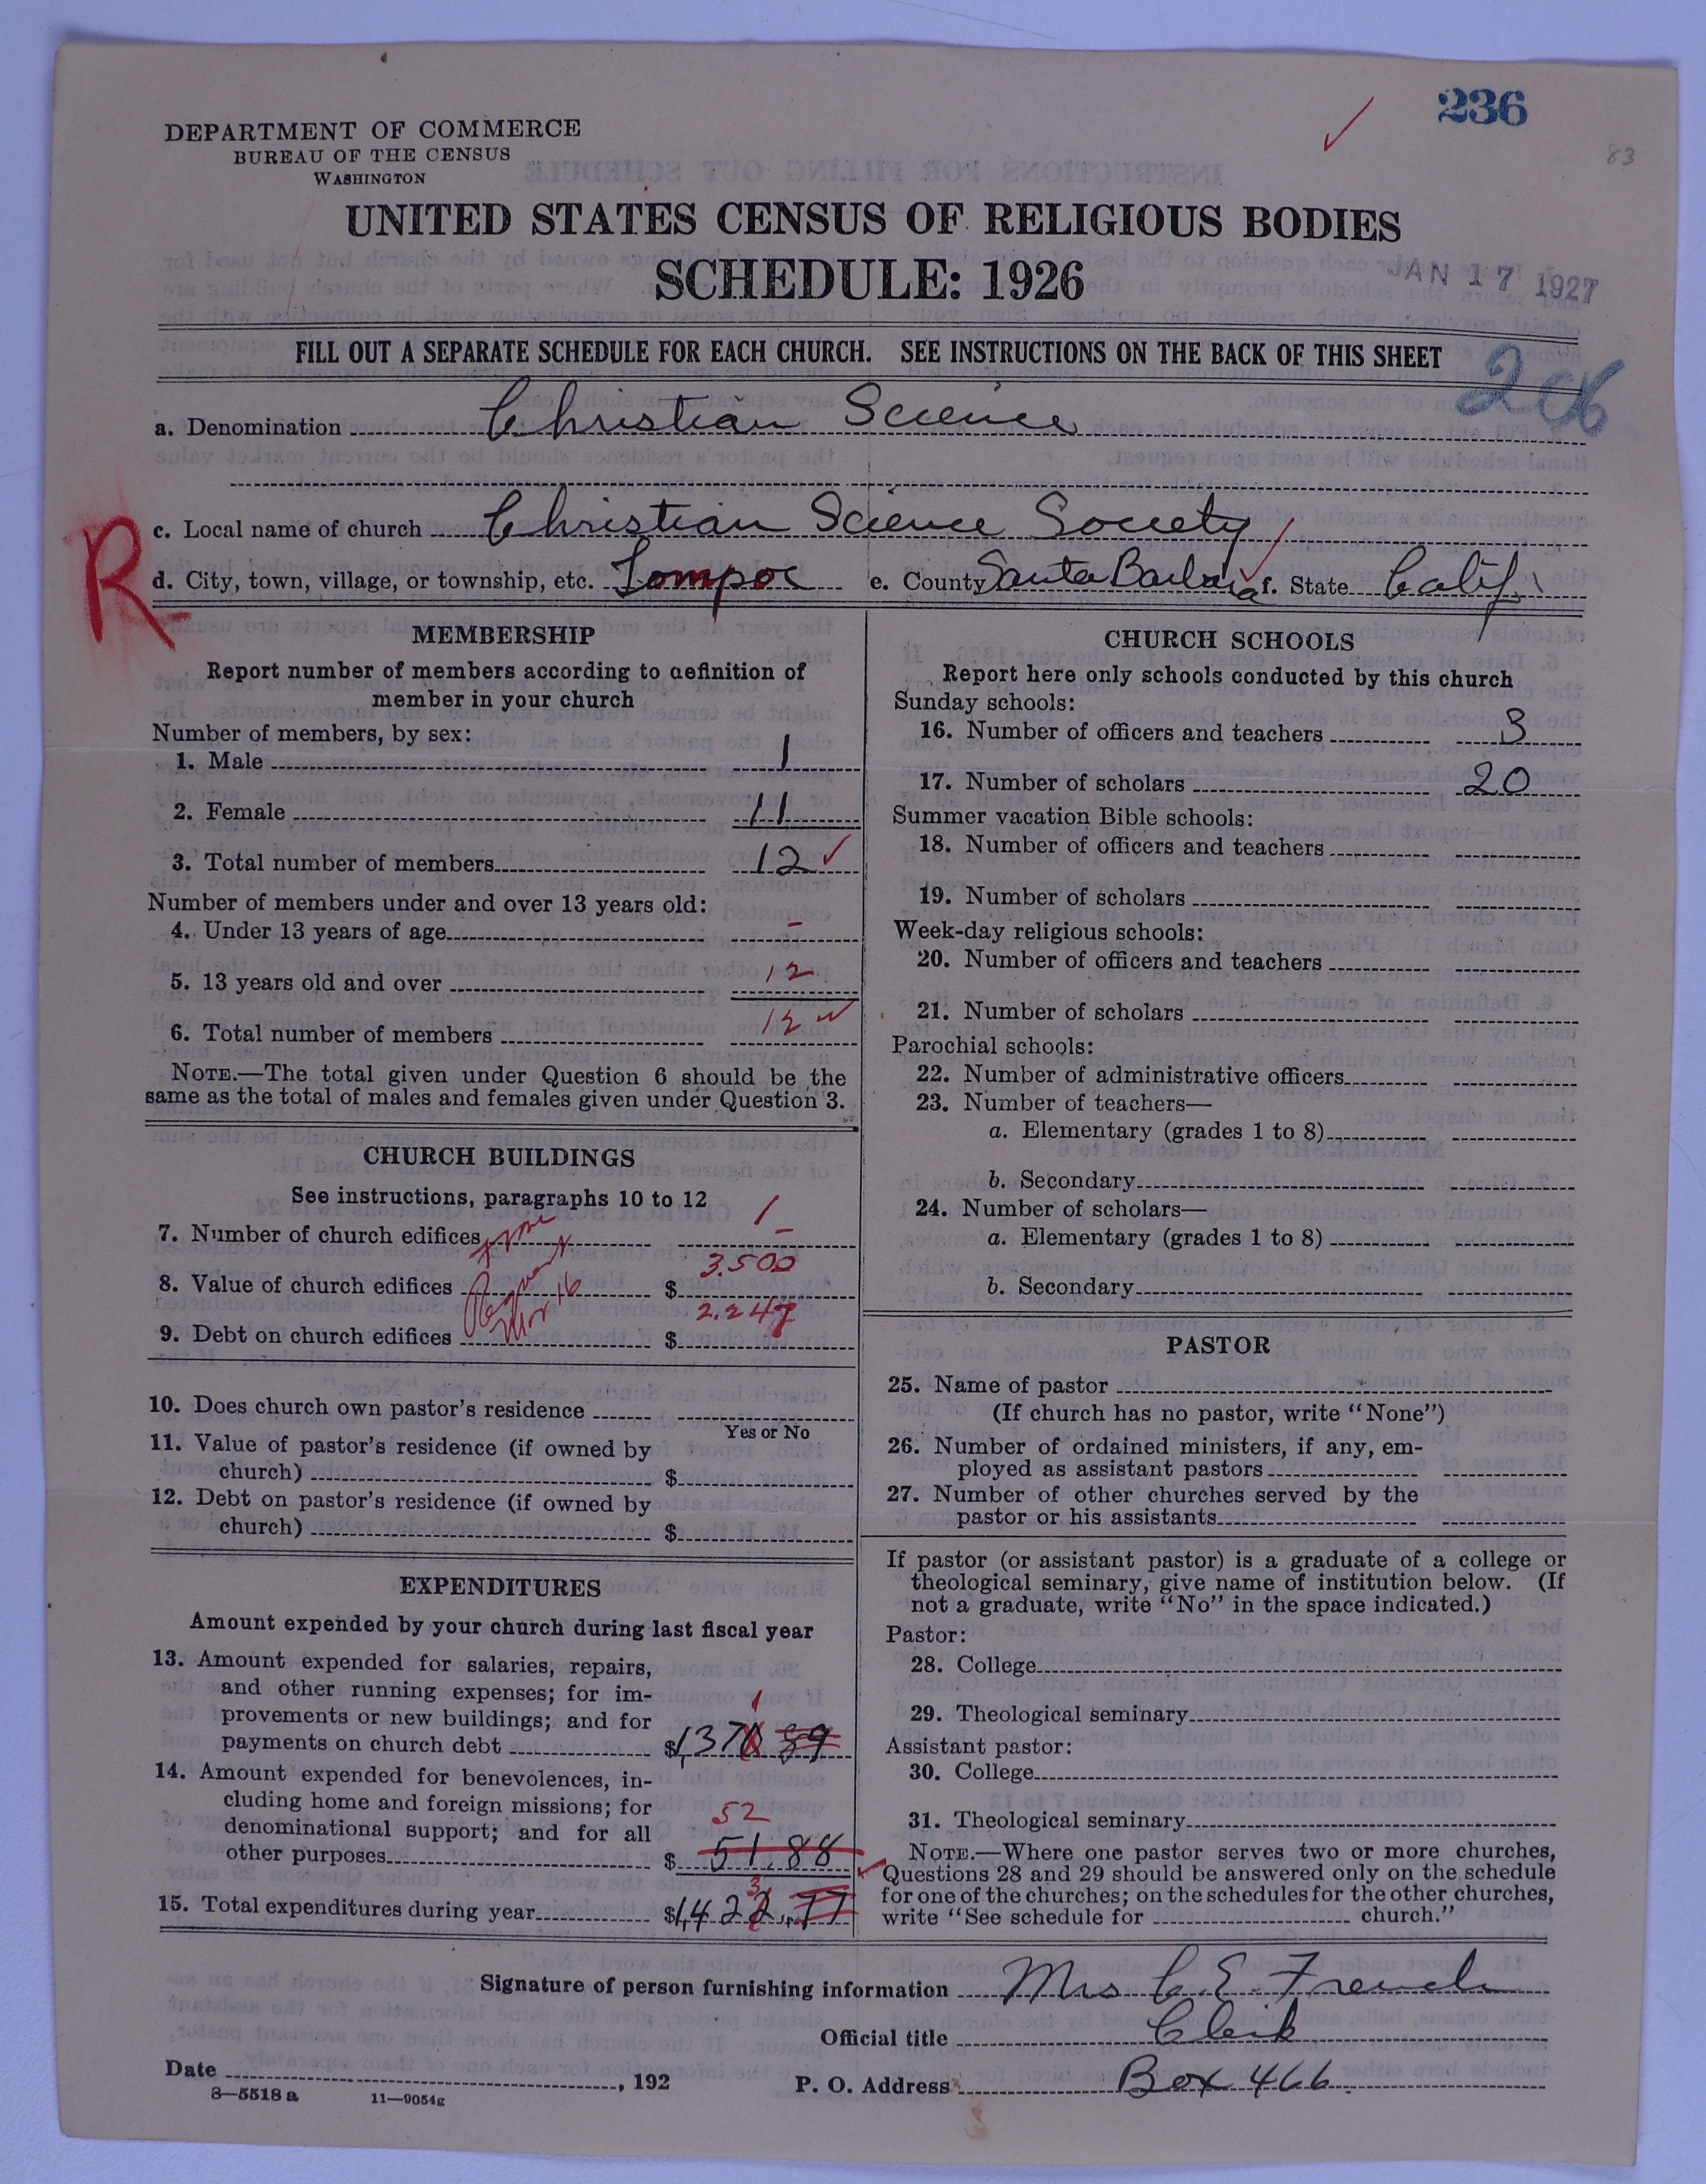 236
83
DEPARTMENT OF COMMERCE
BUREAU OF THE CENSUS
WASHINGTON
UNITED STATES CENSUS OF RELIGIOUS BODIES
SCHEDULE: 1926
JAN 17 1927
FILL OUT A SEPARATE SCHEDULE FOR EACH CHURCH. SEE INSTRUCTIONS ON THE BACK OF THIS SHEET
a. Denomination Christian Science
c. Local name of church Christian Science Society
R
d. City, town, village, or township, etc. Lompoc e. County Santa Barbara f. State Calif.
MEMBERSHIP
Report number of members according to definition of
member in your church
Number of members, by sex:
1. Male 1
2. Female 11
3. Total number of members 12
Number of members under and over 13 years old:
4. Under 13 years of age –
5. 13 years old and over 12
6. Total number of members 12
NOTE.—The total given under Question 6 should be the
same as the total of males and females given under Question 3.
CHURCH BUILDINGS
See instructions, paragraphs 10 to 12
7. Number of church edifices 1
8. Value of church edifices $ 3.500
9. Debt on church edifices $ 2.247
10. Does church own pastor's residence
Yes or No
11. Value of pastor's residence (if owned by
church) $
12. Debt on pastor's residence (if owned by
church) $
EXPENDITURES
Amount expended by your church during last fiscal year
13. Amount expended for salaries, repairs,
and other running expenses; for im-
provements or new buildings; and for
1
payments on church debt $1,370 89
14. Amount expended for benevolences, in-
cluding home and foreign missions; for
denominational support; and for all
52
other purposes $ 51.88
3
15. Total expenditures during year $1,422.77
CHURCH SCHOOLS
Report here only schools conducted by this church
Sunday schools:
16. Number of officers and teachers 3
17. Number of scholars 20
Summer vacation Bible schools:
18. Number of officers and teachers
19. Number of scholars
Week-day religious schools:
20. Number of officers and teachers
21. Number of scholars
Parochial schools:
22. Number of administrative officers
23. Number of teachers—
a. Elementary (grades 1 to 8)
b. Secondary
24. Number of scholars—
a. Elementary (grades 1 to 8)
b. Secondary
PASTOR
25. Name of pastor
(If church has no pastor, write "None")
26. Number of ordained ministers, if any, em-
ployed as assistant pastors
27. Number of other churches served by the
pastor or his assistants
If pastor (or assistant pastor) is a graduate of a college or
theological seminary, give name of institution below. (If
not a graduate, write "No" in the space indicated.)
Pastor:
28. College
29. Theological seminary
Assistant pastor:
30. College
31. Theological seminary
NOTE.—Where one pastor serves two or more churches,
Questions 28 and 29 should be answered only on the schedule
for one of the churches; on the schedules for the other churches,
write "See schedule for church."
Signature of person furnishing information Mrs C. E. French
Official title Clerk
Date , 192
P. O. Address Box 466.
8—5518 a 11—9054g